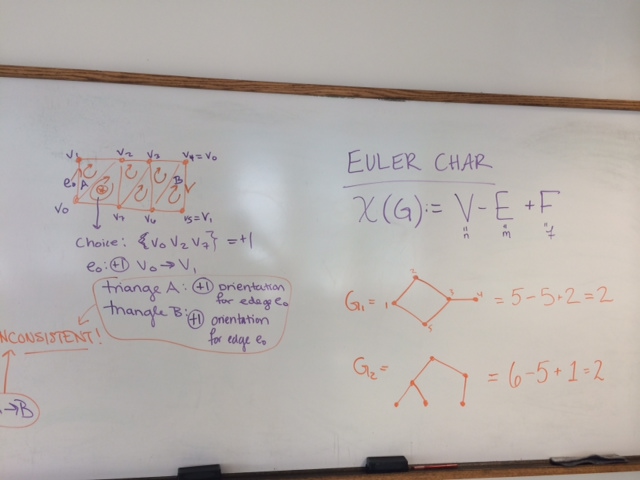 V₁ V₂ V₃ V₄=V₀
e₀ A B
V₀ V₇ V₆ V₅=V₁
Choice: {V₀ V₂ V₇} = +1
e₀: +1 V₀ → V₁
triange A: +1 orientation
for edege e₀
triangle B: +1 orientation
for edge e₀
NCONSISTENT!
→B
EULER CHAR
χ(G):= V - E + F
n m f
G₁= 1 2 3 4 5 = 5-5+2=2
G₂= = 6-5+1=2